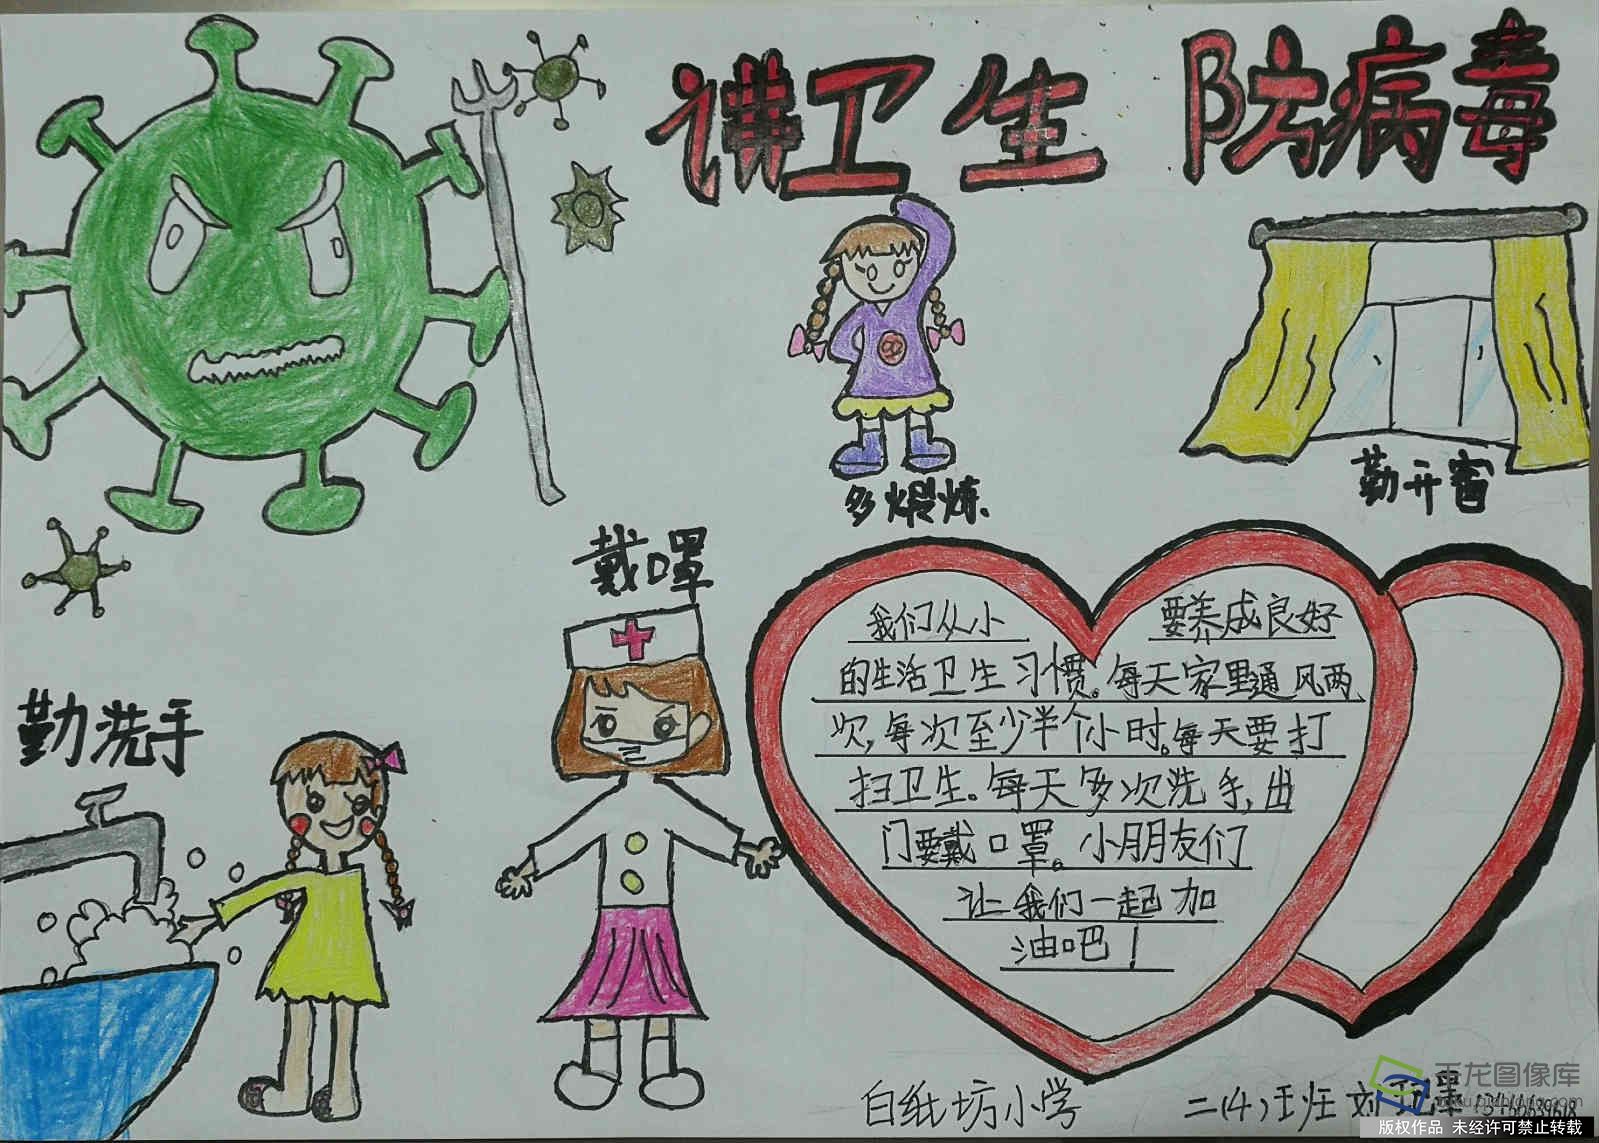 讲卫生 防病毒
多煅炼
勤开窗
戴口罩
勤洗手
我们从小 要养成良好
的生活卫生习惯。每天家里通风两
次,每次至少半个小时。每天要打
扫卫生。每天多次洗手,出
门要戴口罩。小朋友们
让我们一起加
油吧！
白纸坊小学 二(4)班 刘
千龙图像库
版权作品 未经许可禁止转载